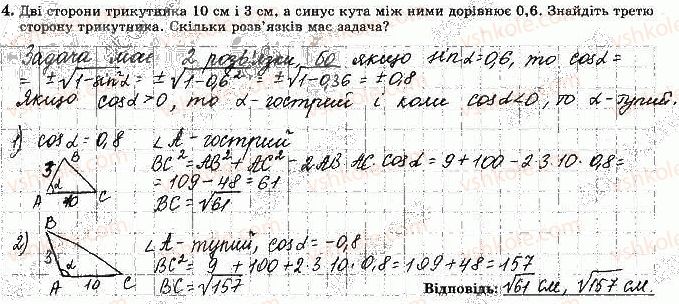 4. Дві сторони трикутника 10 см і 3 см, а синус кута між ними дорівнює 0,6. Знайдіть третю
сторону трикутника. Скільки розв'язків має задача?
Задача має 2 розв'язки, бо якщо sinα=0,6, то cosα=
= ±√1-sin²α = ±√1-0,6² = ±√1-0,36 = ±0,8
Якщо cosα>0, то α-гострий і коли cosα<0, то α-тупий.
1) cosα=0,8 ∠A-гострий
BC²=AB²+AC²-2AB·AC cosα=9+100-2·3·10·0,8=
=109-48=61
BC=√61
B
3
α
A 10 C
2) ∠A-тупий, cosα=-0,8
BC²=9+100+2·3·10·0,8=109+48=157
BC=√157
B
3
α
A 10 C
Відповідь: √61 см, √157 см.
vshkole.com